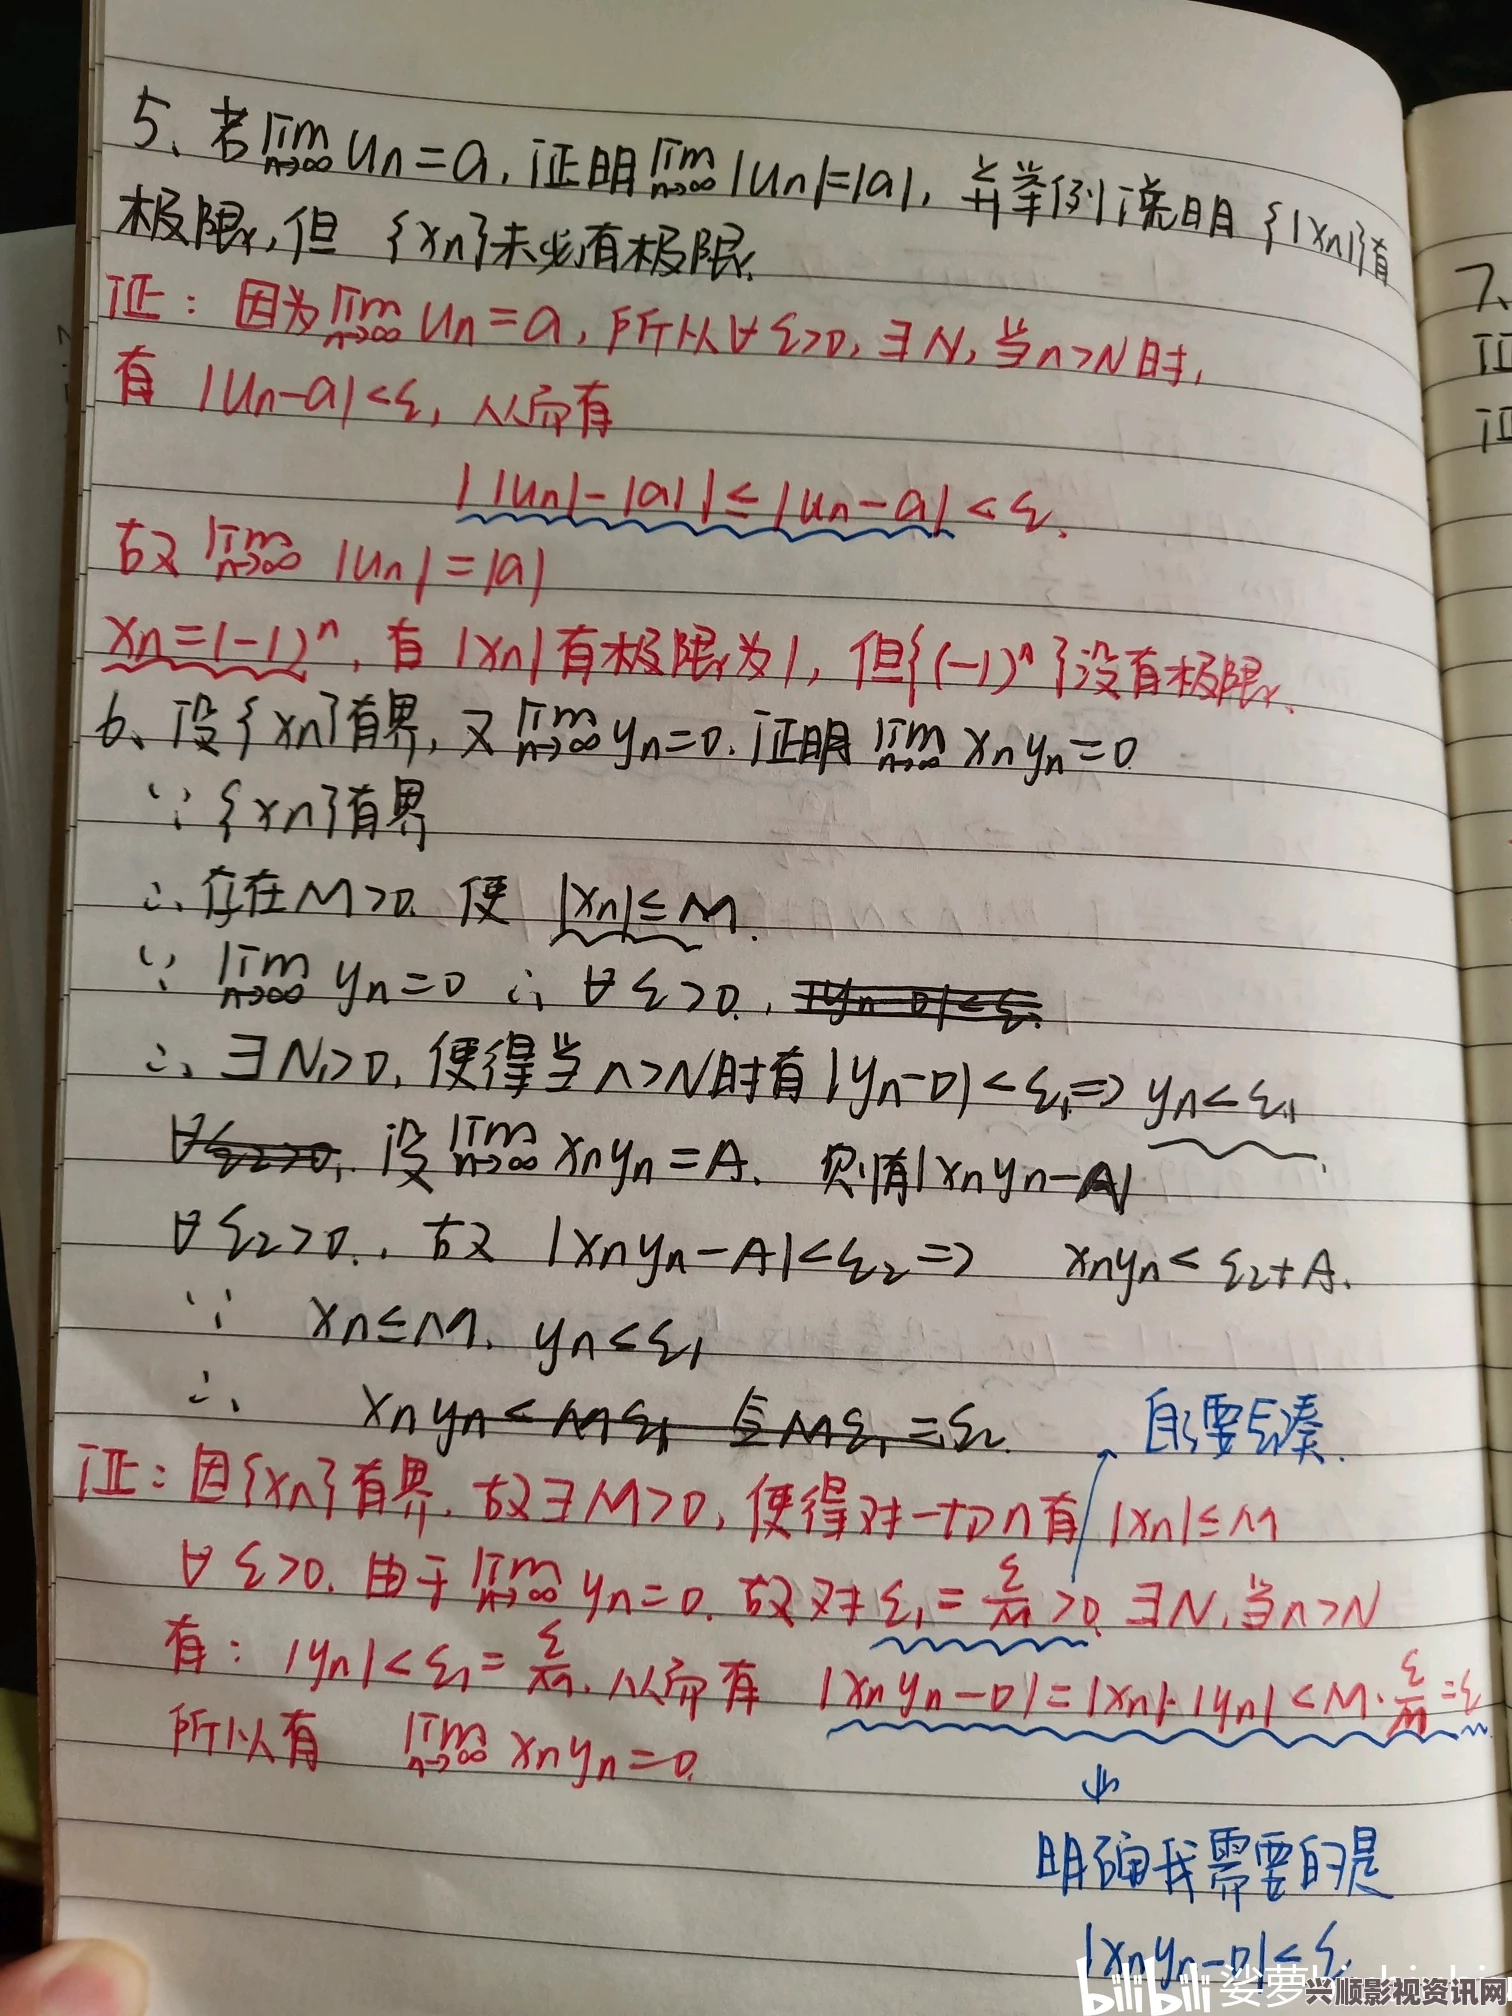 5、若lim n→∞ un=a,证明lim n→∞ |un|=|a|,并举例说明{|xn|}有
极限,但{xn}未必有极限.
证:因为lim n→∞ un=a,所以∀ε>0,∃N,当n>N时,
有|un-a|<ε,从而有
||un|-|a||≤|un-a|<ε.
故 lim n→∞ |un|=|a|
xn=(-1)ⁿ,有|xn|有极限为1,但{(-1)ⁿ}没有极限.
6、设{xn}有界,又lim n→∞ yn=0.证明lim n→∞ xnyn=0
∵{xn}有界
∴存在M>0.使|xn|≤M.
∵lim n→∞ yn=0 ∴∀ε>0.,|yn-0|<ε.
∴∃N>0,使得当n>N时有|yn-0|<ε₁⇒yn<ε₁.
∀ε₂>0,设lim n→∞ xnyn=A.则有|xnyn-A|
∀ε₂>0.,故|xnyn-A|<ε₂⇒ xnyn<ε₂+A.
∵ xn≤M. yn<ε₁
∴ xnyn<Mε₁ 令Mε₁=ε₂.
自己要去凑.
证:因{xn}有界,故∃M>0,使得对一切n有|xn|≤M
∀ε>0.由于lim n→∞ yn=0.故对ε₁=ε/M>0.∃N,当n>N
有:|yn|<ε₁=ε/M.从而有|xnyn-0|=|xn|·|yn|<M·ε/M=ε
所以有 lim n→∞ xnyn=0.
↓
明确我需要的是
|xnyn-0|<ε.
7、
证
证
bilibili 娑萝
兴顺影视资讯网